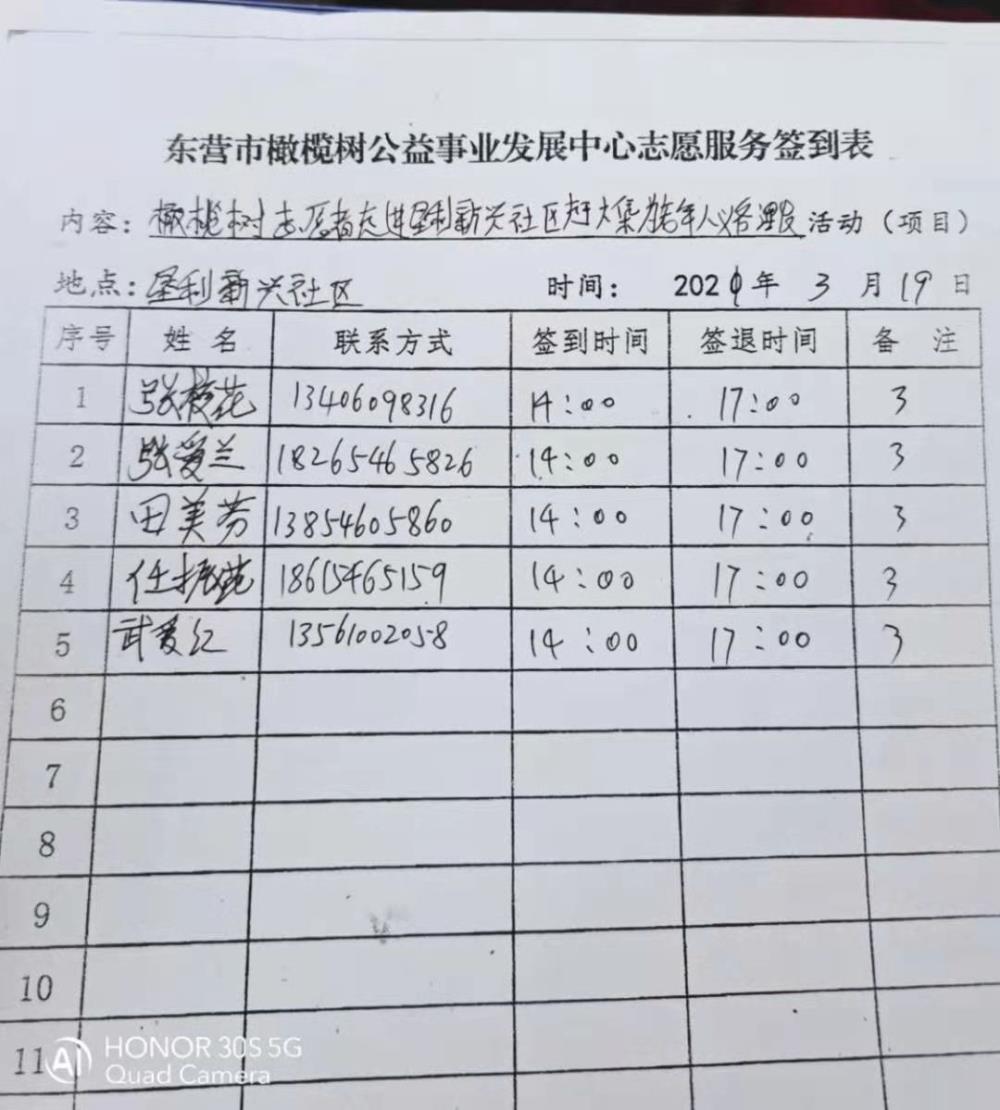 东营市橄榄树公益事业发展中心志愿服务签到表
内容：橄榄树志愿者走进垦利新兴社区赶大集为老年人义务理发活动（项目）
地点：垦利新兴社区 时间：2021年3月19日
序号 姓名 联系方式 签到时间 签退时间 备注
1 张桂花 13406098316 14:00 17:00 3
2 张爱兰 18265465826 14:00 17:00 3
3 田美芳 13854605860 14:00 17:00 3
4 任振花 18615465159 14:00 17:00 3
5 武爱红 13561002058 14:00 17:00 3
6
7
8
9
10
11
AI HONOR 30S 5G
Quad Camera